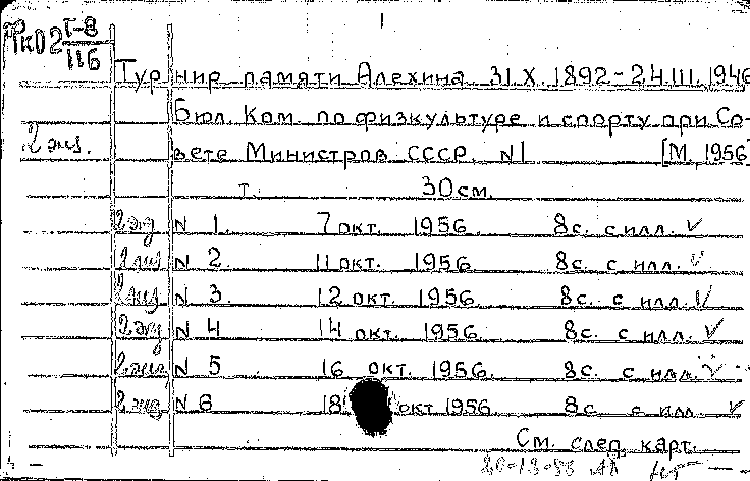 1
ТкО2 Т-8/116
Турнир памяти Алехина 31.X.1892-24.III.1946
Бюл. Ком. по физкультуре и спорту при Со-
2 экз. вете Министров СССР. N1 [М, 1956
т. 30 см.
2 экз N 1. 7 окт. 1956. 8с. с илл. ✓
2 экз N 2 11 окт. 1956 8с. с илл. ✓
2 экз N 3 12 окт. 1956 8с. с илл. ✓
2 экз N 4 14 окт. 1956. 8с. с илл. ✓
2 экз N 5 16 окт. 1956. 8с. с илл. ✓
2 экз N 6 18 окт 1956 8с с илл ✓
См. след. карт.